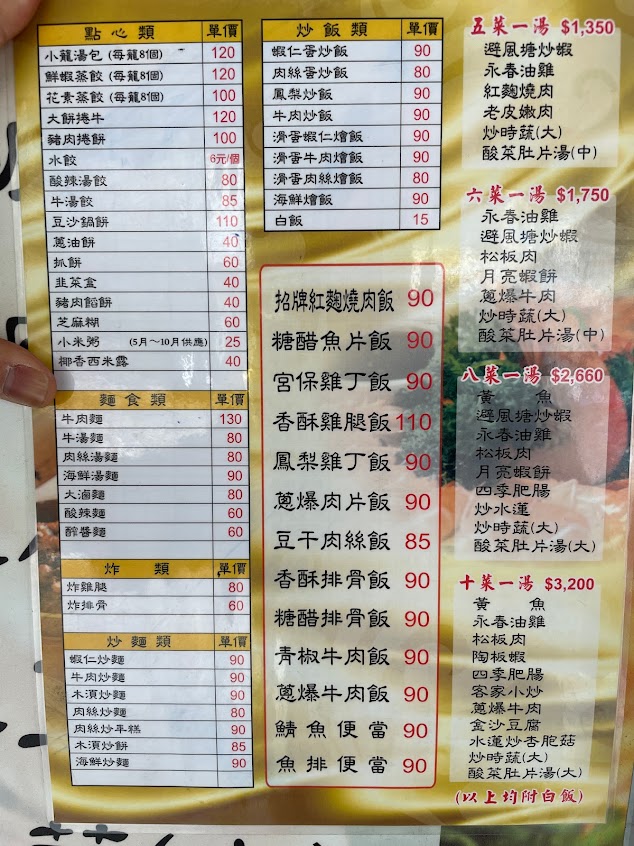 點心類 單價
小籠湯包 (每籠8個) 120
鮮蝦蒸餃 (每籠8個) 120
花素蒸餃 (每籠8個) 100
大餅捲牛 120
豬肉捲餅 100
水餃 6元/個
酸辣湯餃 80
牛湯餃 85
豆沙鍋餅 110
蔥油餅 40
抓餅 60
韭菜盒 40
豬肉餡餅 40
芝麻糊 60
小米粥 (5月～10月供應) 25
椰香西米露 40
麵食類 單價
牛肉麵 130
牛湯麵 80
肉絲湯麵 80
海鮮湯麵 90
大滷麵 80
酸辣麵 60
醡醬麵 60
炸類 單價
炸雞腿 80
炸排骨 60
炒麵類 單價
蝦仁炒麵 90
牛肉炒麵 90
木須炒麵 90
肉絲炒麵 80
肉絲炒年糕 90
木須炒餅 85
海鮮炒麵 90
炒飯類 單價
蝦仁蛋炒飯 90
肉絲蛋炒飯 80
鳳梨炒飯 90
牛肉炒飯 90
滑蛋蝦仁燴飯 90
滑蛋牛肉燴飯 90
滑蛋肉絲燴飯 80
海鮮燴飯 90
白飯 15
招牌紅麴燒肉飯 90
糖醋魚片飯 90
宮保雞丁飯 90
香酥雞腿飯 110
鳳梨雞丁飯 90
蔥爆肉片飯 90
豆干肉絲飯 85
香酥排骨飯 90
糖醋排骨飯 90
青椒牛肉飯 90
蔥爆牛肉飯 90
鯖魚便當 90
魚排便當 90
五菜一湯 $1,350
避風塘炒蝦
永春油雞
紅麴燒肉
老皮嫩肉
炒時蔬(大)
酸菜肚片湯(中)
六菜一湯 $1,750
永春油雞
避風塘炒蝦
松板肉
月亮蝦餅
蔥爆牛肉
炒時蔬(大)
酸菜肚片湯(中)
八菜一湯 $2,660
黃魚
避風塘炒蝦
永春油雞
松板肉
月亮蝦餅
四季肥腸
炒水蓮
炒時蔬(大)
酸菜肚片湯(大)
十菜一湯 $3,200
黃魚
永春油雞
松板肉
陶板蝦
四季肥腸
客家小炒
蔥爆牛肉
金沙豆腐
水蓮炒杏胞菇
炒時蔬(大)
酸菜肚片湯(大)
(以上均附白飯)